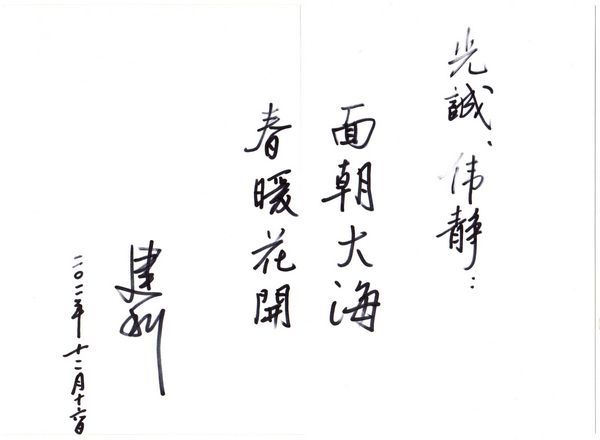 光誠、伟静：
面朝大海
春暖花開
建利
二〇一一年十二月十六日